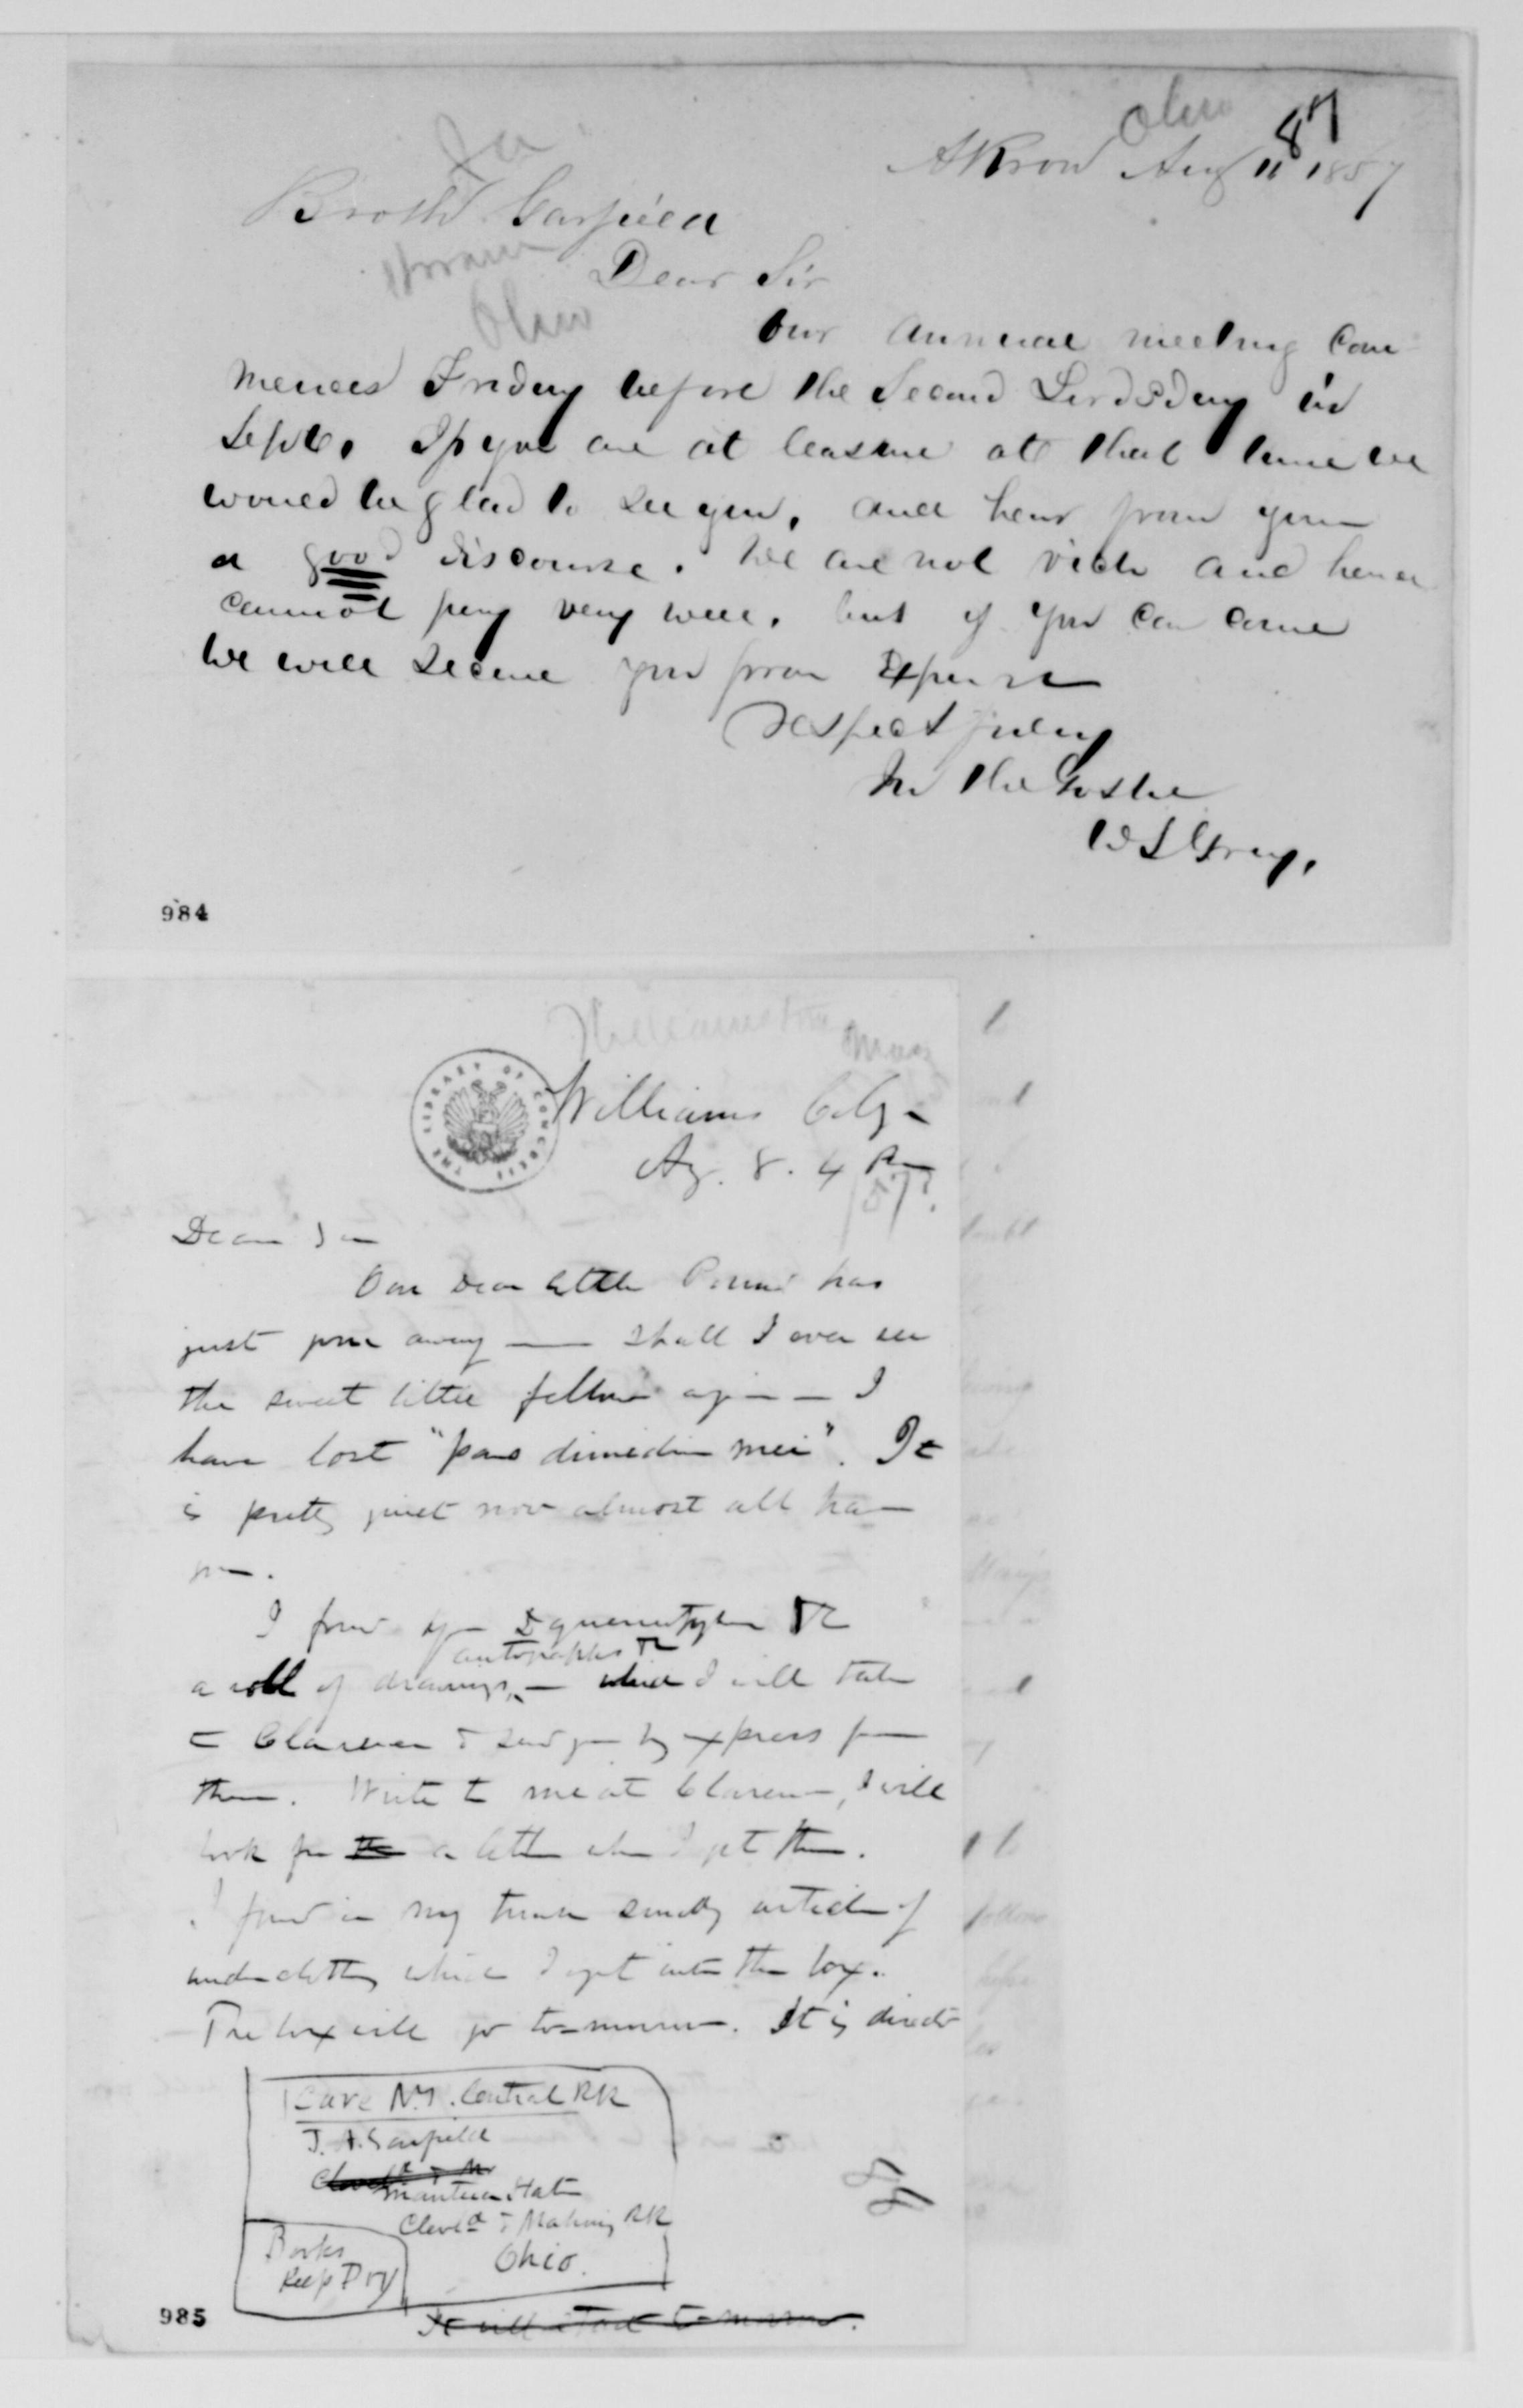 Ohio
87
Akron Aug 11 1857
Ja
Broth Garfield
Hiram
Dear Sir
Ohio
Our annual meeting Com
mences Friday before the Second Lordsday in
Septe. If you are at leasure at that time we
would be glad to see you, and hear from you
a good discourse. We are not rich and hence
cannot pay very well, but if you can come
We will secure you from Expense
Respectfully
In the Gospel
W S Gray.
984
Williamstown
Mass
THE LIBRARY OF CONGRESS
Williams Colg
Ag. 8. 4 Pm
1857?
Dear Jim
Our dear little has
just gone away — Shall I ever see
the sweet little fellow again — I
have lost "pars dimidium mei". It
is pretty quiet now almost all have
gone.
I found your Daguerreotype &
autographs &
a roll of drawings, — which I will take
to Clarence & send you by express from
there. Write to me at Clarence, I will
look for a letter when I get there.
I found in my trunk sundry articles of
underclothing which I got into the box.
The box will go to-morrow. It is directed
Care N.Y. Central RR
J. A. Garfield
Mantua Station
Cleveld & Mahoning RR
Ohio.
Books
Keep Dry
It will start to-morrow.
88
985